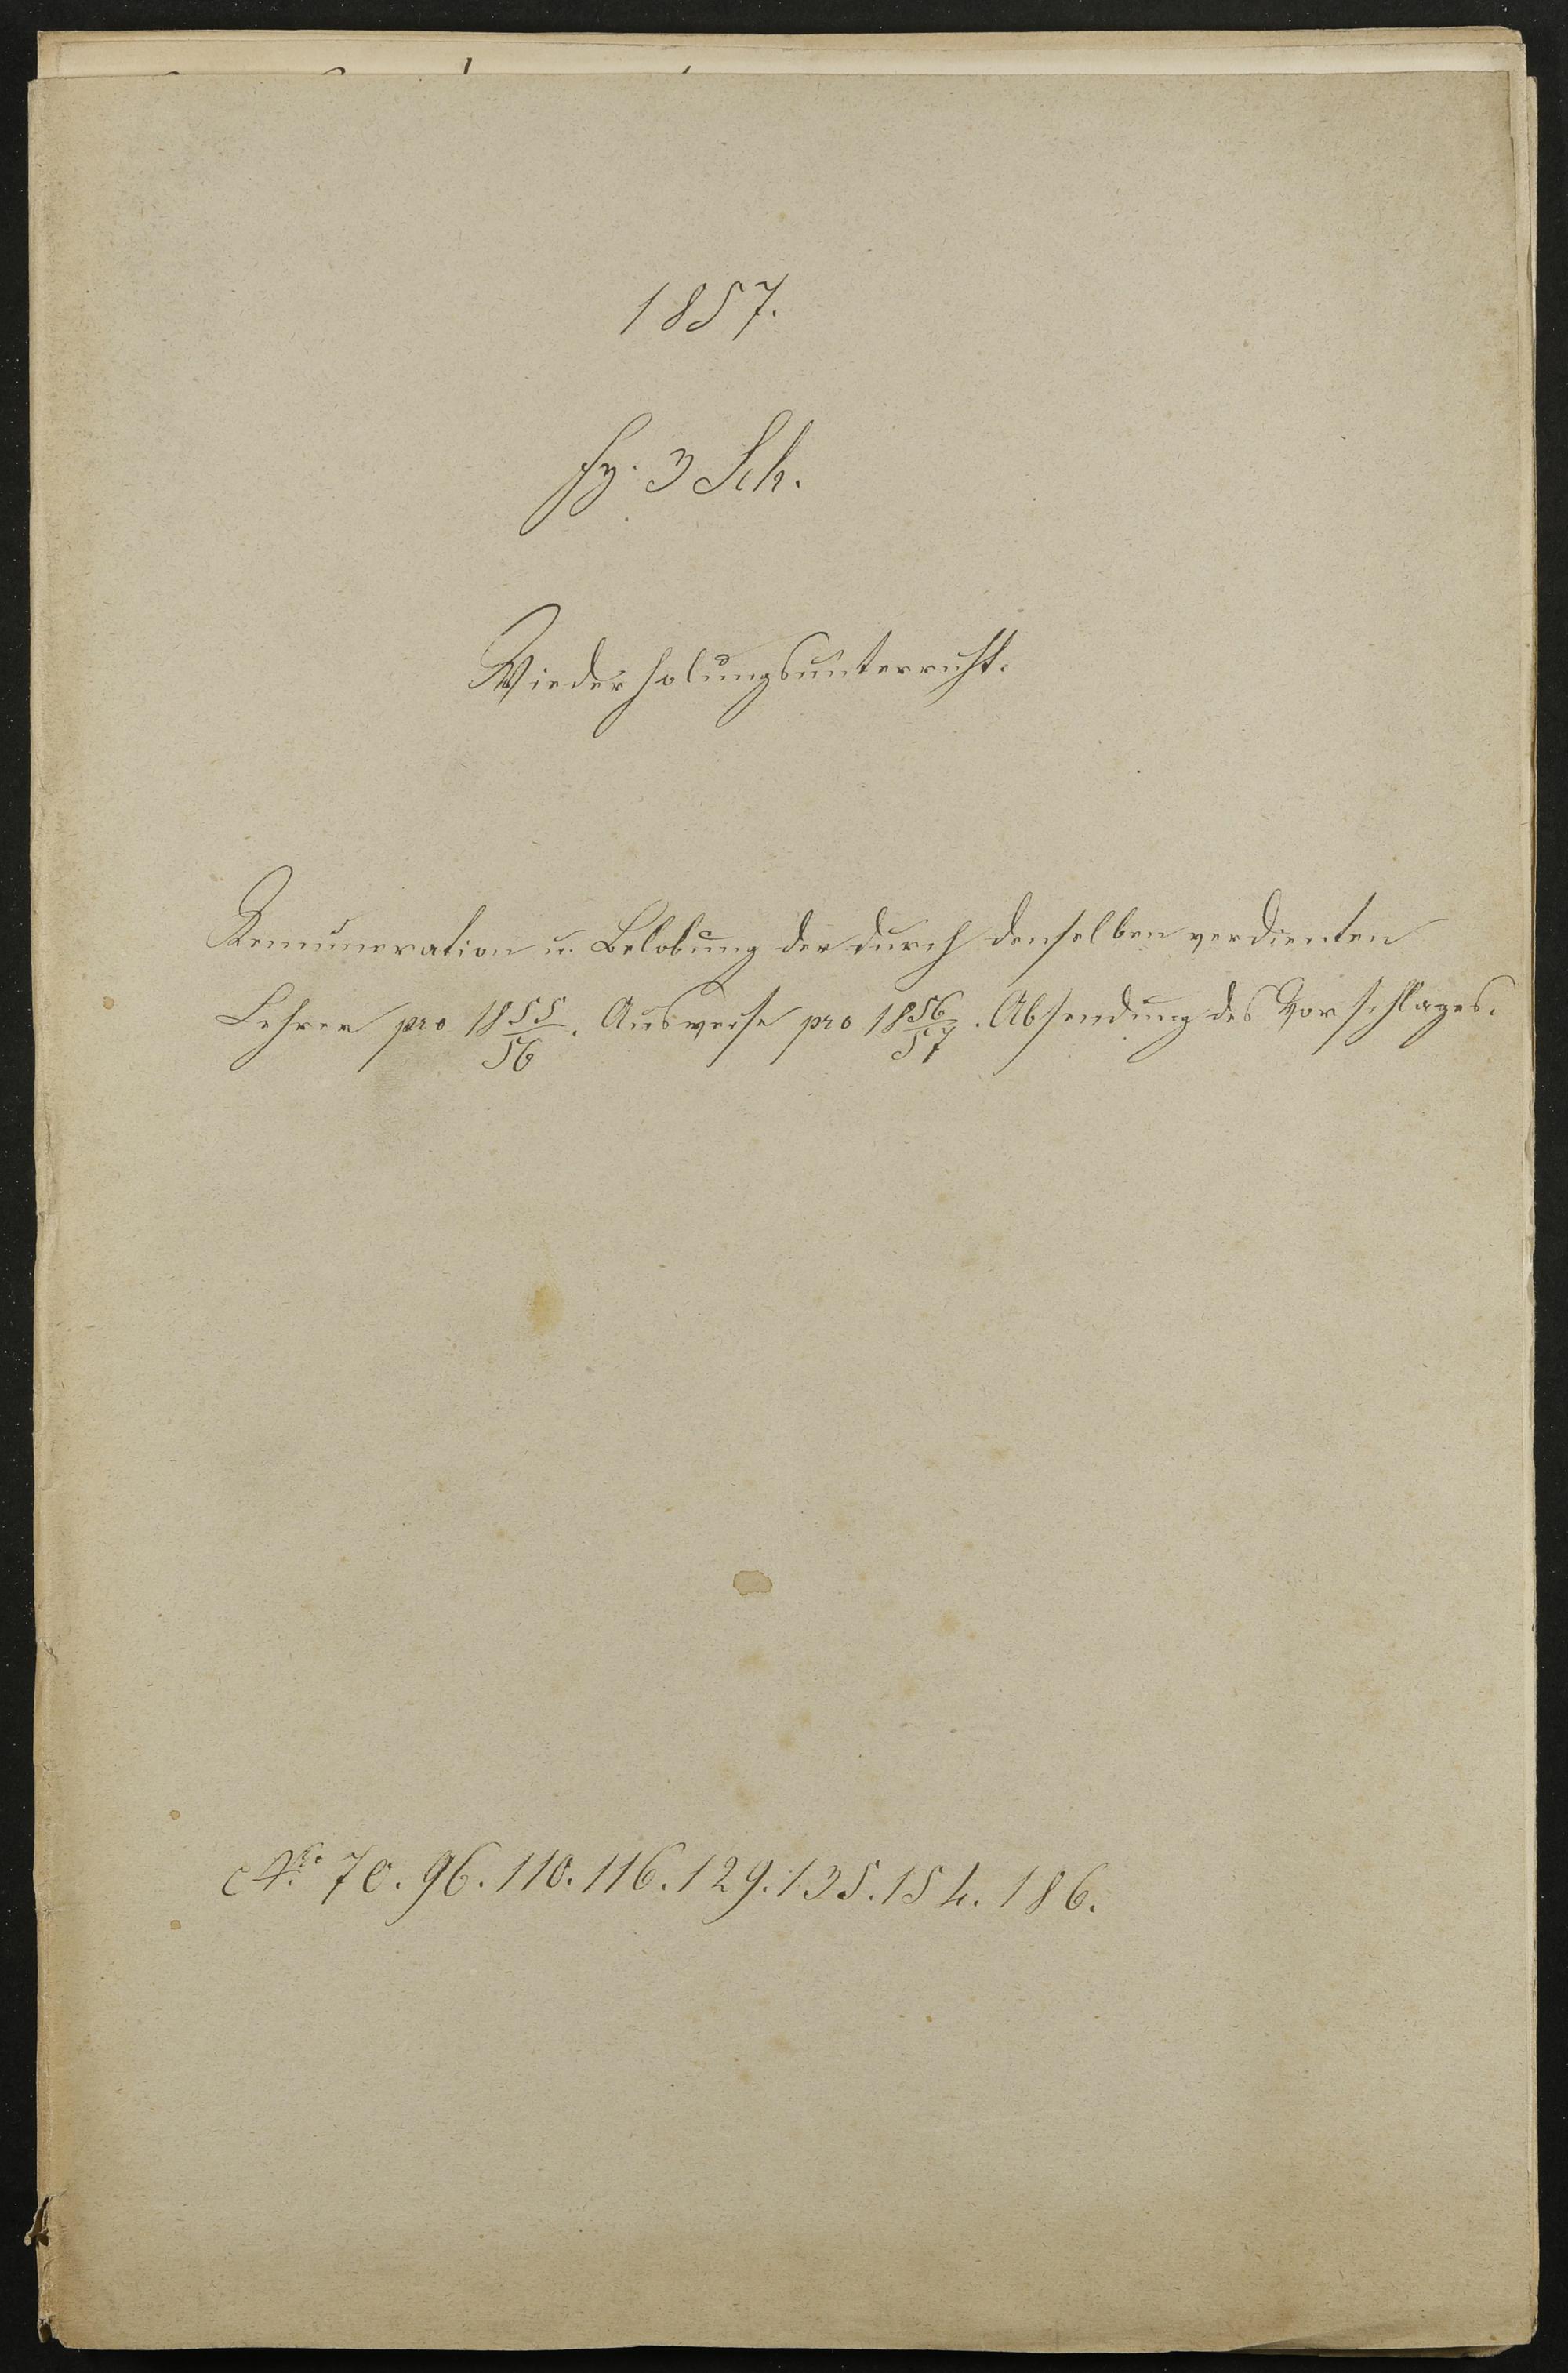 1857.
fz. 3 Sch.
Wiederholungsunterricht.
Remuneration u. Belobung der durch denselben verdienten
Lehrer pro 1855/56. Ausweise pro 1856/57. Absendung des Vorschlages.
Nro 70. 96. 110. 116. 129. 135. 154. 186.